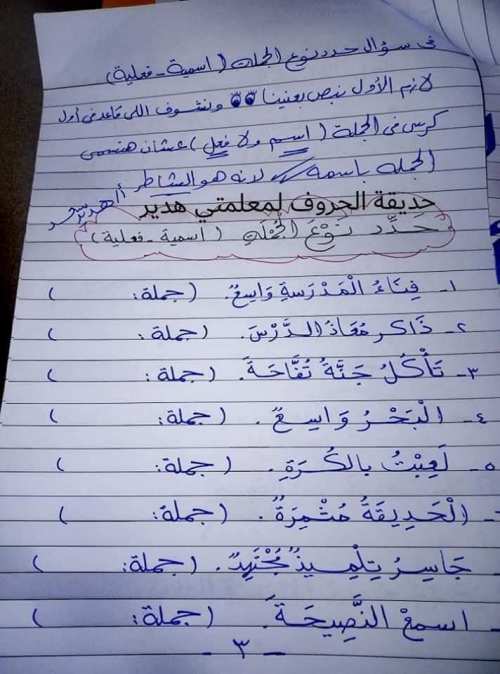 فى سؤال حدد نوع الجملة (اسمية - فعلية)
لازم الأول نبص بعنينا 👀 ونشوف اللى قاعد فى أول
كرسى فى الجملة (اسم ولا فعل) عشان هنسمى
الجملة باسمه لانه هو الشاطر أ/هدير
حديقة الحروف لمعلمتي هدير
حَدِّد نَوْع الجُمْلَة (اسمية - فعلية)
١- فِنَاءُ الْمَدْرَسَةِ وَاسِعٌ. (جملة: )
٢- ذَاكَر مُعَاذُ الدَّرْسَ. (جملة: )
٣- تَأْكُلُ جَنَّةُ تُفَّاحَةً. (جملة: )
٤- الْبَحْرُ وَاسِعٌ. (جملة: )
٥- لَعِبْتُ بِالكُرَةِ. (جملة: )
- الْحَدِيقَةُ مُثْمِرَةٌ. (جملة: )
جَاسِرُ تِلْمِيذٌ مُجْتَهِدٌ. (جملة: )
- اسمعْ النَّصِيحَةَ. (جملة: )
- ٣ -